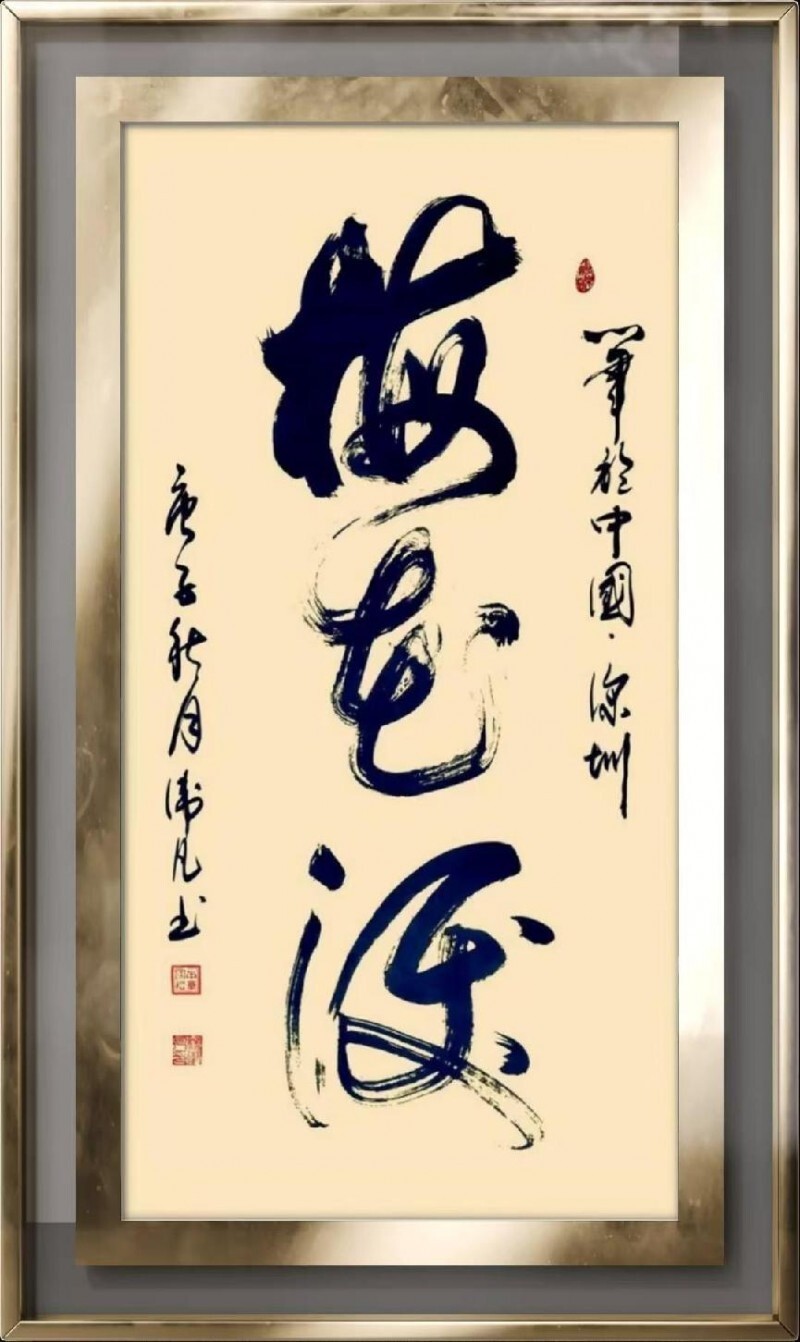 筆於中國·深圳
梅花淚
庚子秋月 凡书